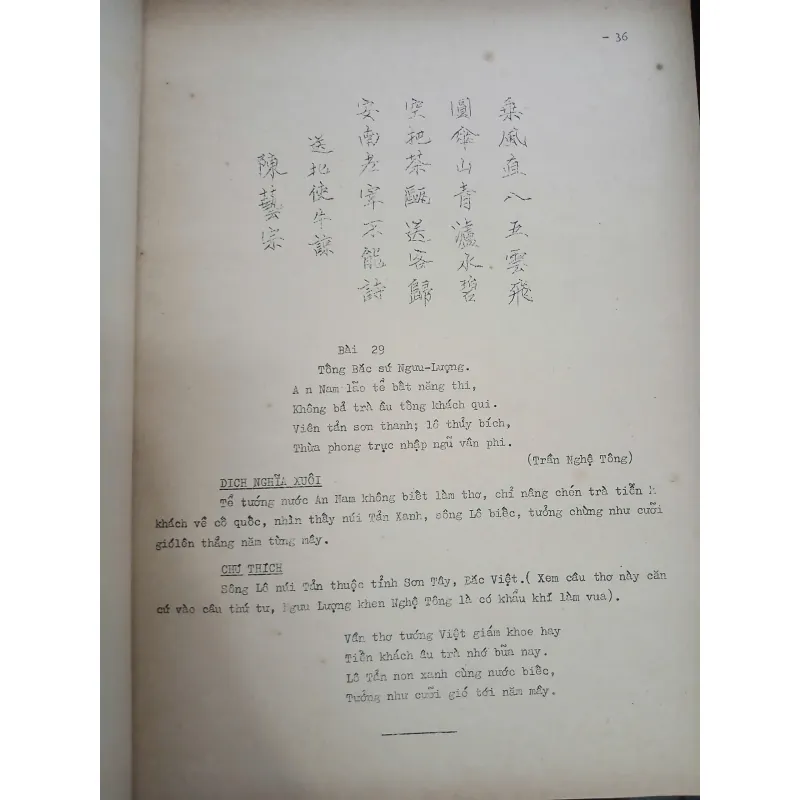 - 36
陳藝宗
送北使牛諒
安南老宰不能詩
空把茶甌送客歸
圓傘山青瀘水碧
乘風直入五雲飛
Bài 29
Tống Bắc sứ Ngưu-Lượng.
A n Nam lão tể bất năng thi,
Không bả trà âu tống khách qui.
Viên tản sơn thanh; lô thủy bích,
Thừa phong trực nhập ngũ vân phi.
(Trần Nghệ Tông)
DỊCH NGHĨA XUÔI
Tể tướng nước An Nam không biết làm thơ, chỉ nâng chén trà tiễn
khách về cố quốc, nhìn thấy núi Tản Xanh, sông Lô biếc, tưởng chừng như cưỡi
gióiên thẳng năm từng mây.
CHÚ THÍCH
Sông Lô núi Tản thuộc tỉnh Sơn Tây, Bắc Việt.( Xem câu thơ này căn
cứ vào câu thứ tư, Ngưu Lượng khen Nghệ Tông là có khẩu khí làm vua).
Vần thơ tướng Việt giám khoe hay
Tiễn khách âu trà nhớ bữa nay.
Lô Tản non xanh cùng nước biếc,
Tưởng như cưỡi gió tới năm mây.